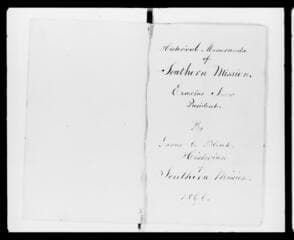 Historical Memoranda
of
Southern Mission.
Erastus Snow
President.
By
James G. Bleak
Historian
of
Southern Mission.